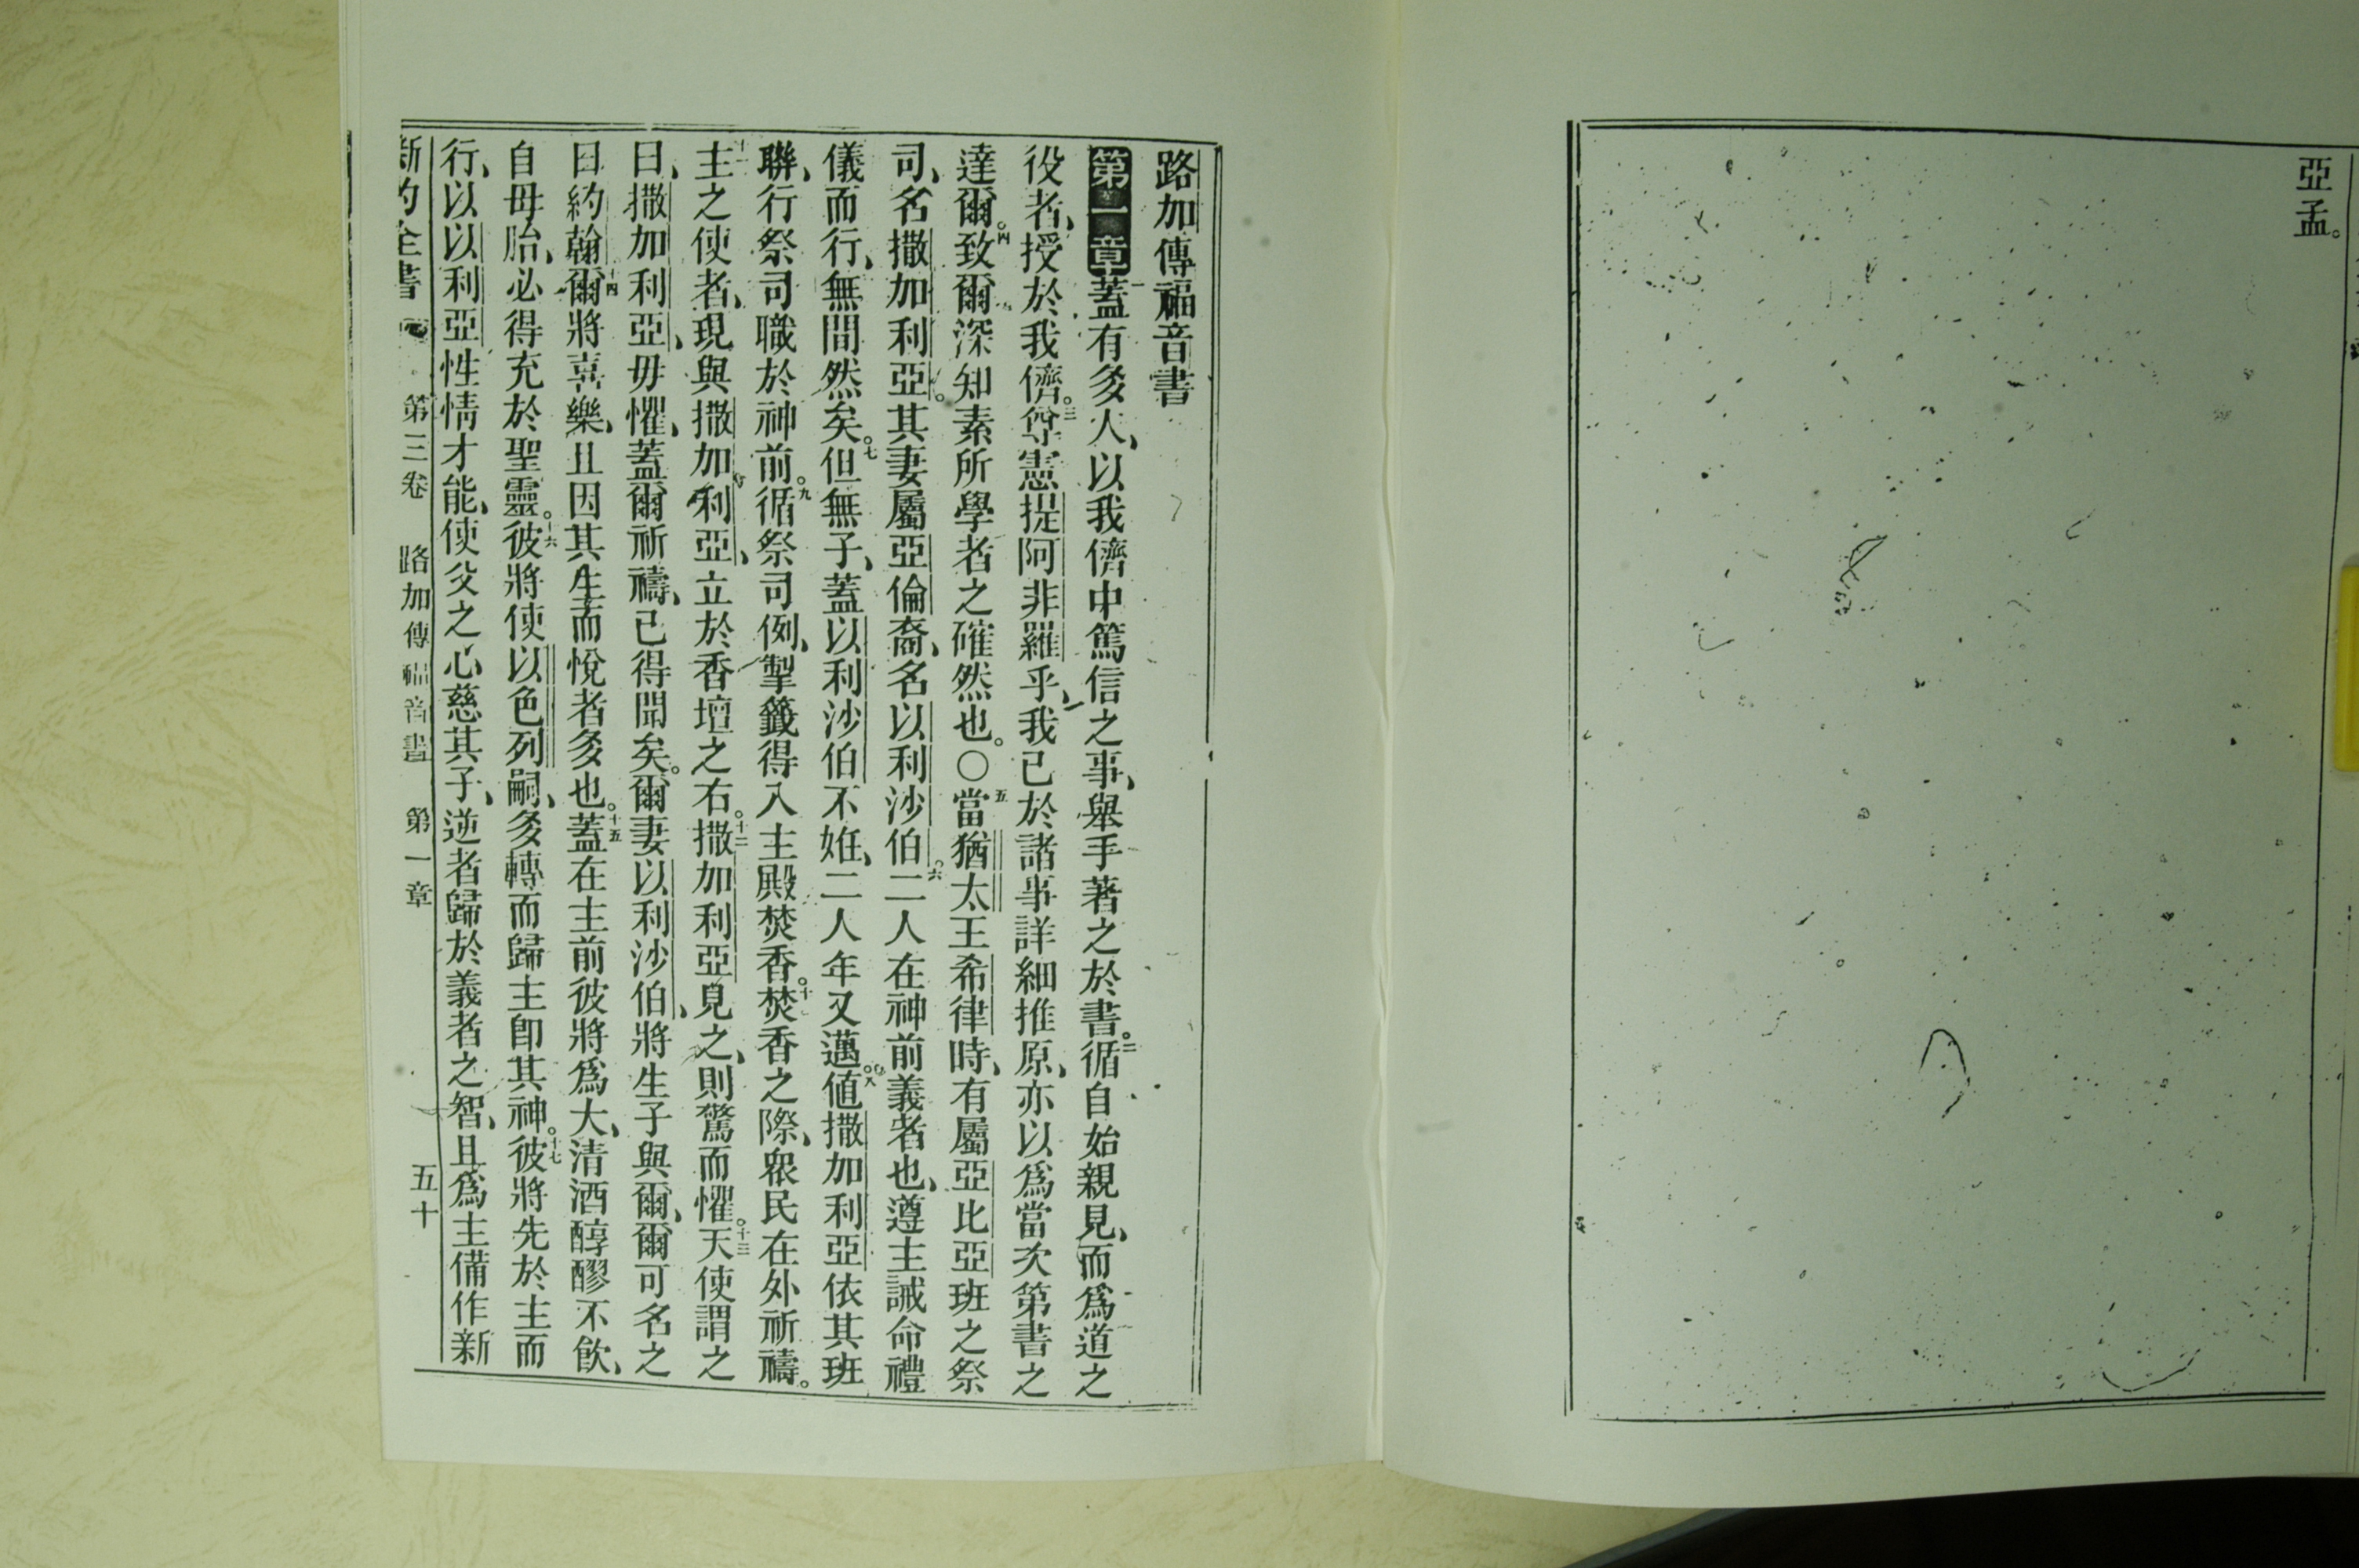 亞孟。
路加傳福音書
第一章 一蓋有多人、以我儕中篤信之事、舉手著之於書。二循自始親見、而爲道之
役者、授於我儕。三尊憲提阿非羅乎、我已於諸事詳細推原、亦以爲當次第書之
達爾。四致爾深知素所學者之確然也。〇五當猶太王希律時、有屬亞比亞班之祭
司、名撒加利亞。其妻屬亞倫裔、名以利沙伯。六二人在神前義者也、遵主誡命禮
儀而行、無間然矣。七但無子、蓋以利沙伯不姙、二人年又邁。八値撒加利亞依其班
聯、行祭司職於神前。九循祭司例、掣籤得入主殿焚香。十焚香之際、衆民在外祈禱。
十一主之使者、現與撒加利亞、立於香壇之右。十二撒加利亞見之、則驚而懼。十三天使謂之
曰、撒加利亞、毋懼、蓋爾祈禱、已得聞矣。爾妻以利沙伯、將生子與爾、爾可名之
曰約翰。十四爾將喜樂、且因其生而悅者多也。十五蓋在主前彼將爲大、清酒醇醪不飮、
自母胎、必得充於聖靈。十六彼將使以色列嗣、多轉而歸主卽其神。十七彼將先於主而
行、以以利亞性情才能、使父之心慈其子、逆者歸於義者之智、且爲主備作新
新約全書 第三卷 路加傳福音書 第一章 五十